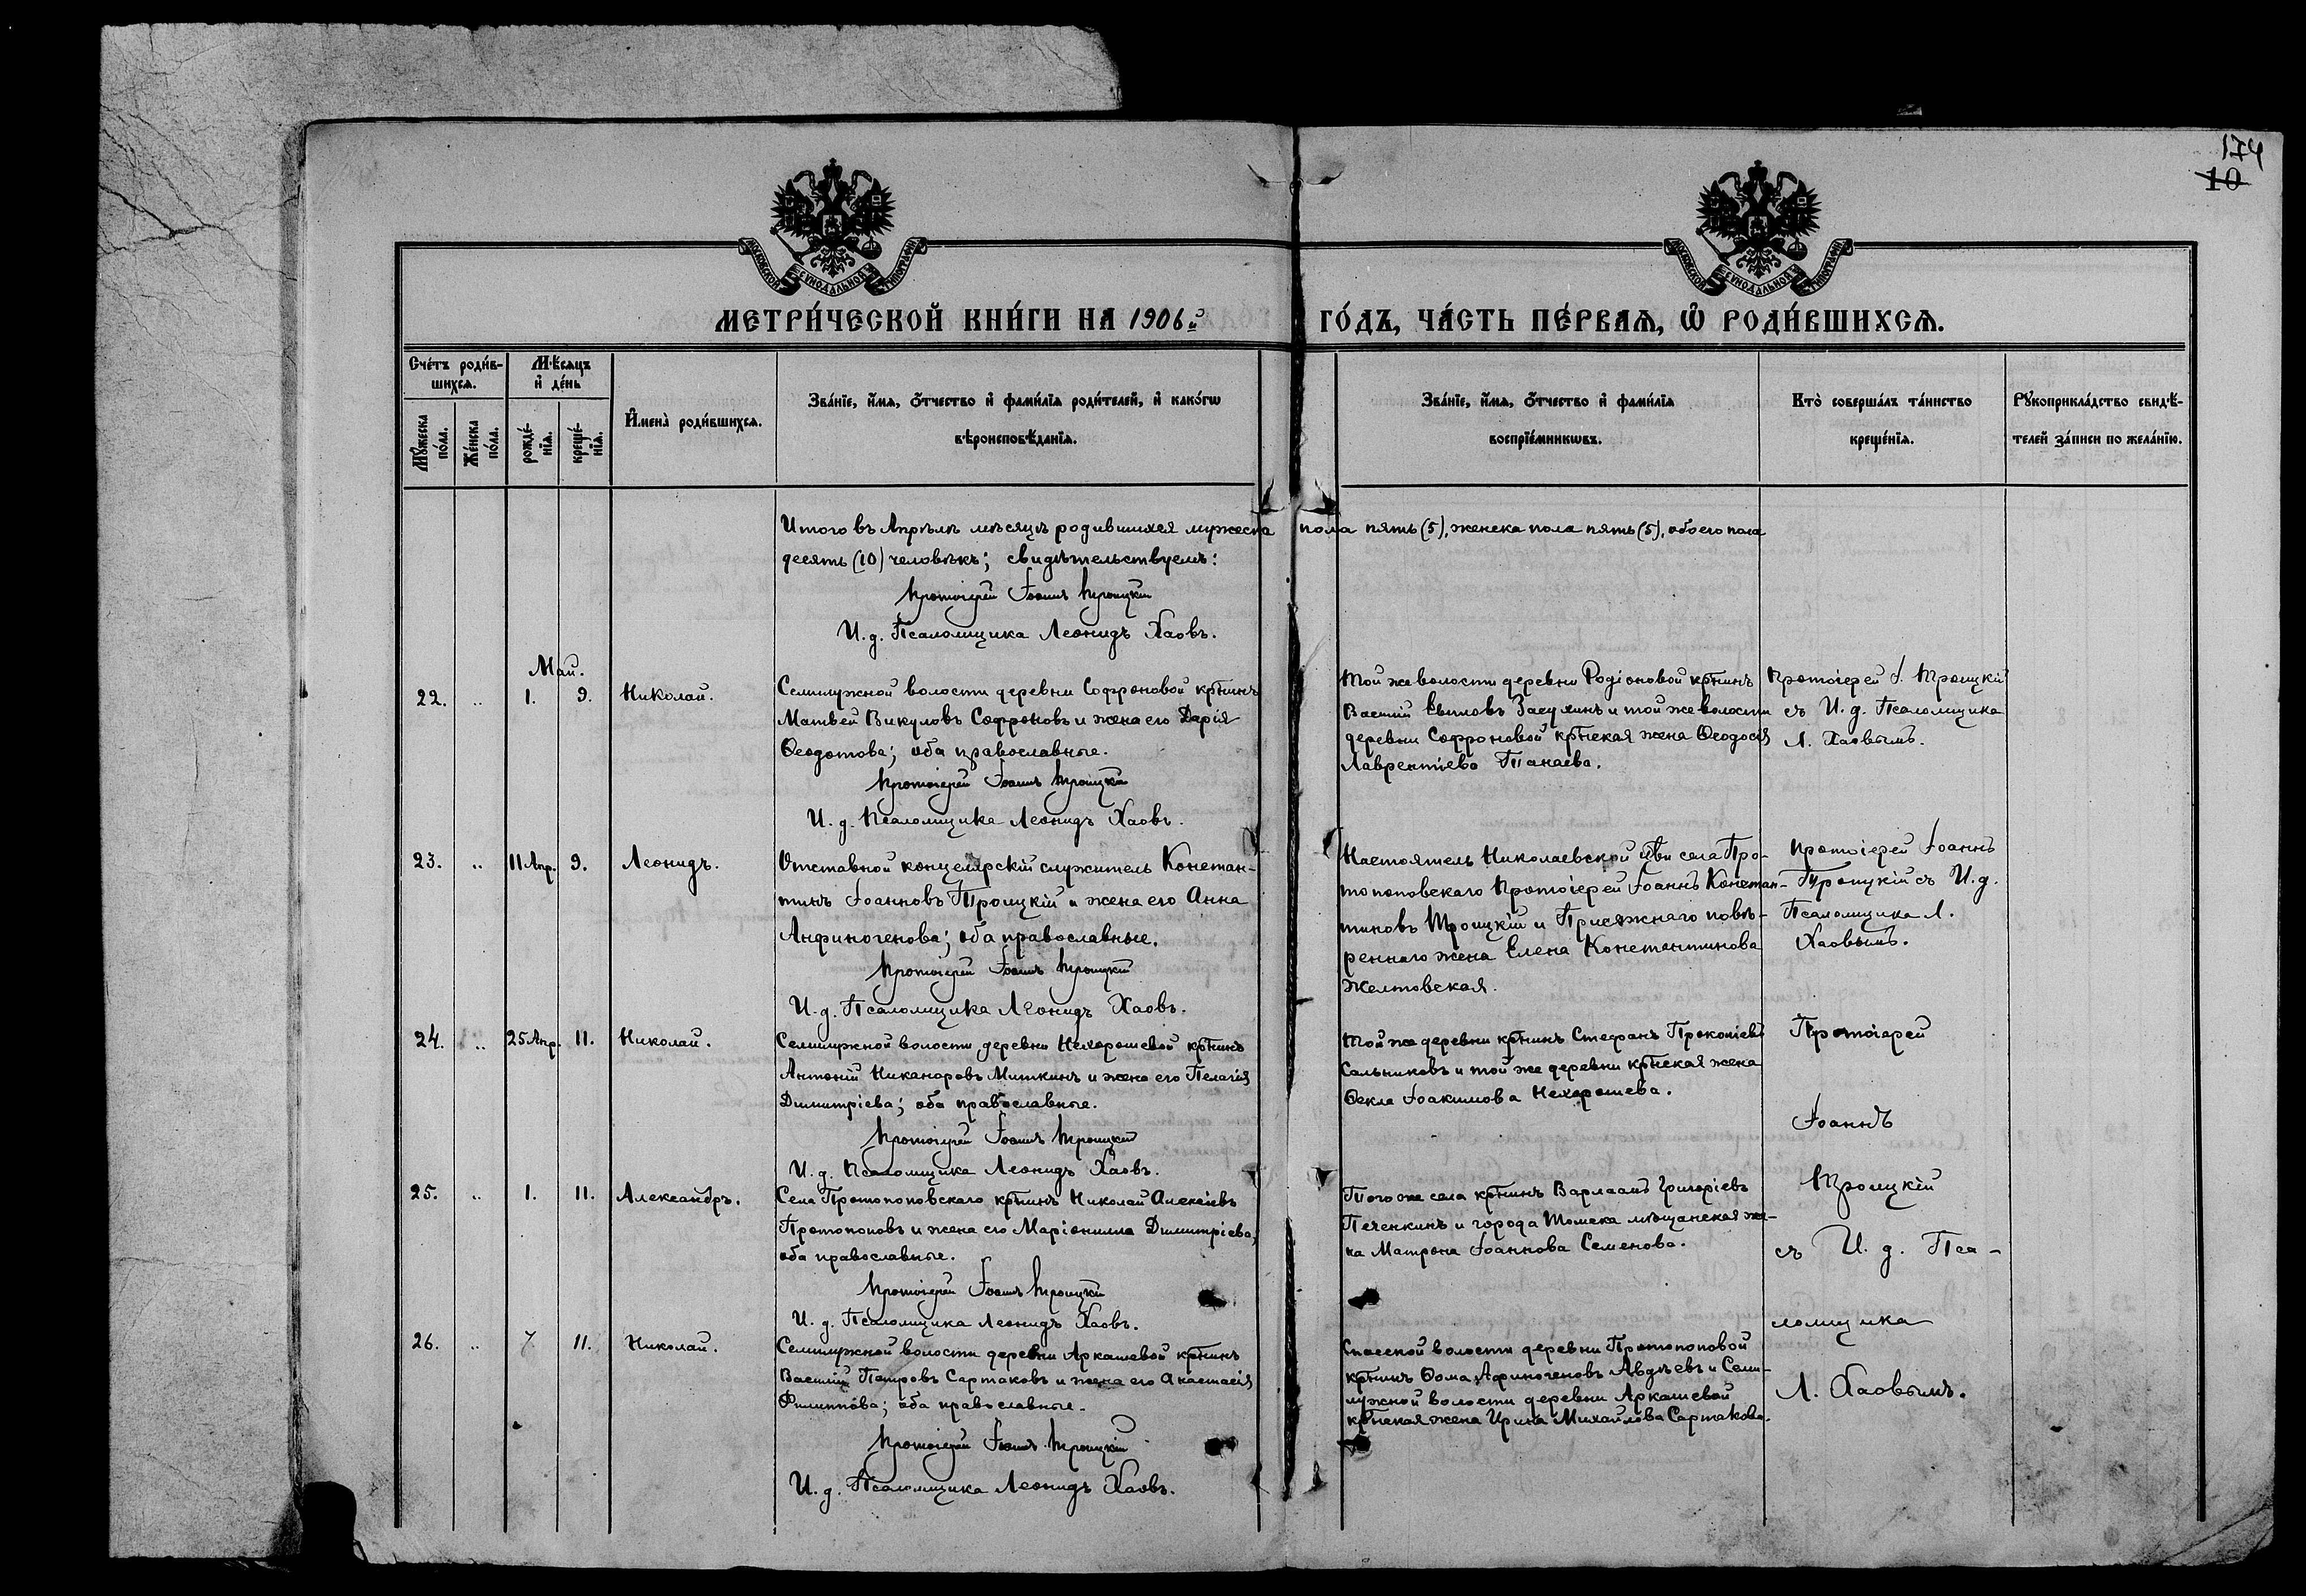 174
10
МОСКОВСКОЙ СѴНОДАЛЬНОЙ ТИПОГРАФІИ
МОСКОВСКОЙ СѴНОДАЛЬНОЙ ТИПОГРАФІИ
МЕТРИ́ЧЕСКОЙ КНИ́ГИ НА 1906й ГО́ДЪ, ЧА́СТЬ ПЕ́РВАѦ, Ѡ҆ РОДИ́ВШИХСѦ.
Сче́тъ роди́в-
шихсѧ.
Мѣ́сѧцъ
и҆ де́нь
Мꙋ́жеска по́ла.
Же́нска по́ла.
рожде́-
нїѧ.
креще́-
нїѧ.
И҆мена̀ роди́вшихсѧ.
Зва́нїе, и҆́мѧ, ѻ҆́тчество и҆ фами́лїѧ роди́телей, и҆ како́гѡ
вѣроисповѣ́данїѧ.
Зва́нїе, и҆́мѧ, ѻ҆́тчество и҆ фами́лїѧ
воспрїе́мникѡвъ.
Кто̀ соверша́лъ та́инство
креще́нїѧ.
Рꙋкоприкла́дство свидѣ́-
телей за́писи по жела́нїю.
Итого въ Апрѣлѣ мѣсяцѣ родившихся мужеска пола пять (5), женска пола пять (5), обоего пола
десять (10) человѣкъ; свидѣтельствуемъ:
Протоіерей Іоаннъ Троицкій
И. д. Псаломщика Леонидъ Хаовъ.
Май.
22. „ 1. 9. Николай.
Семилужной волости деревни Софроновой кр҃нинъ
Матвѣй Викуловъ Софроновъ и жена его Дарія
Ѳеодотова; оба православные.
Протоіерей Іоаннъ Троицкій
И. д. Псаломщика Леонидъ Хаовъ.
Той же волости деревни Родіоновой кр҃нинъ
Василій и той же волости
деревни Софроновой кр҃нская жена Ѳеодосія
Лаврентіева Танаева.
Протоіерей І. Троицкій
съ И. д. Псаломщика
Л. Хаовымъ.
23. „ 11 Апр. 9. Леонидъ.
Отставной концелярскій служитель Констан-
тинъ Іоанновъ Троицкій и жена его Анна
Анфиногенова; оба православные.
Протоіерей Іоаннъ Троицкій
И. д. Псаломщика Леонидъ Хаовъ.
Настоятель Николаевской ц҃ви села Про-
топоповскаго Протоіерей Іоаннъ Констан-
тиновъ Троицкій и Присяжнаго повѣ-
реннаго жена Елена Константинова
Желтовская.
Протоіерей Іоаннъ
Троицкій съ И. д.
Псаломщика Л.
Хаовымъ.
24. „ 25 Апр. 11. Николай.
Семилужной волости деревни Нехорошевой кр҃нинъ
Антоній Никаноровъ Миткинъ и жена его Пелагія
Димитріева; оба православные.
Протоіерей Іоаннъ Троицкій
И. д. Псаломщика Леонидъ Хаовъ.
Той же деревни кр҃нинъ Стефанъ Прокопіевъ
Сальниковъ и той же деревни кр҃нская жена
Ѳекла Іоакимова Нехорошева.
Протоіерей
Іоаннъ
Троицкій
съ И. д. Пса-
ломщика
Л. Хаовымъ.
25. „ 1. 11. Александръ.
Села Протопоповскаго кр҃нинъ Николай Алексіевъ
Протопоповъ и жена его Маріонилла Димитріева;
оба православные.
Протоіерей Іоаннъ Троицкій
И. д. Псаломщика Леонидъ Хаовъ.
Того же села кр҃нинъ Варлаамъ Григоріевъ
Печенкинъ и города Томска мѣщанская же-
на Матрона Іоаннова Семенова.
26. „ 7 11. Николай.
Семилужной волости деревни Аркашевой кр҃нинъ
Василій Петровъ Сартаковъ и жена его Анастасія
Филиппова; оба православные.
Протоіерей Іоаннъ Троицкій
И. д. Псаломщика Леонидъ Хаовъ.
Спасской волости деревни Протопоповой
кр҃нинъ Ѳома Афиногеновъ Авдѣевъ и Семи-
лужной волости деревни Аркашевой
кр҃нская жена Ирина Михайлова Сартакова.